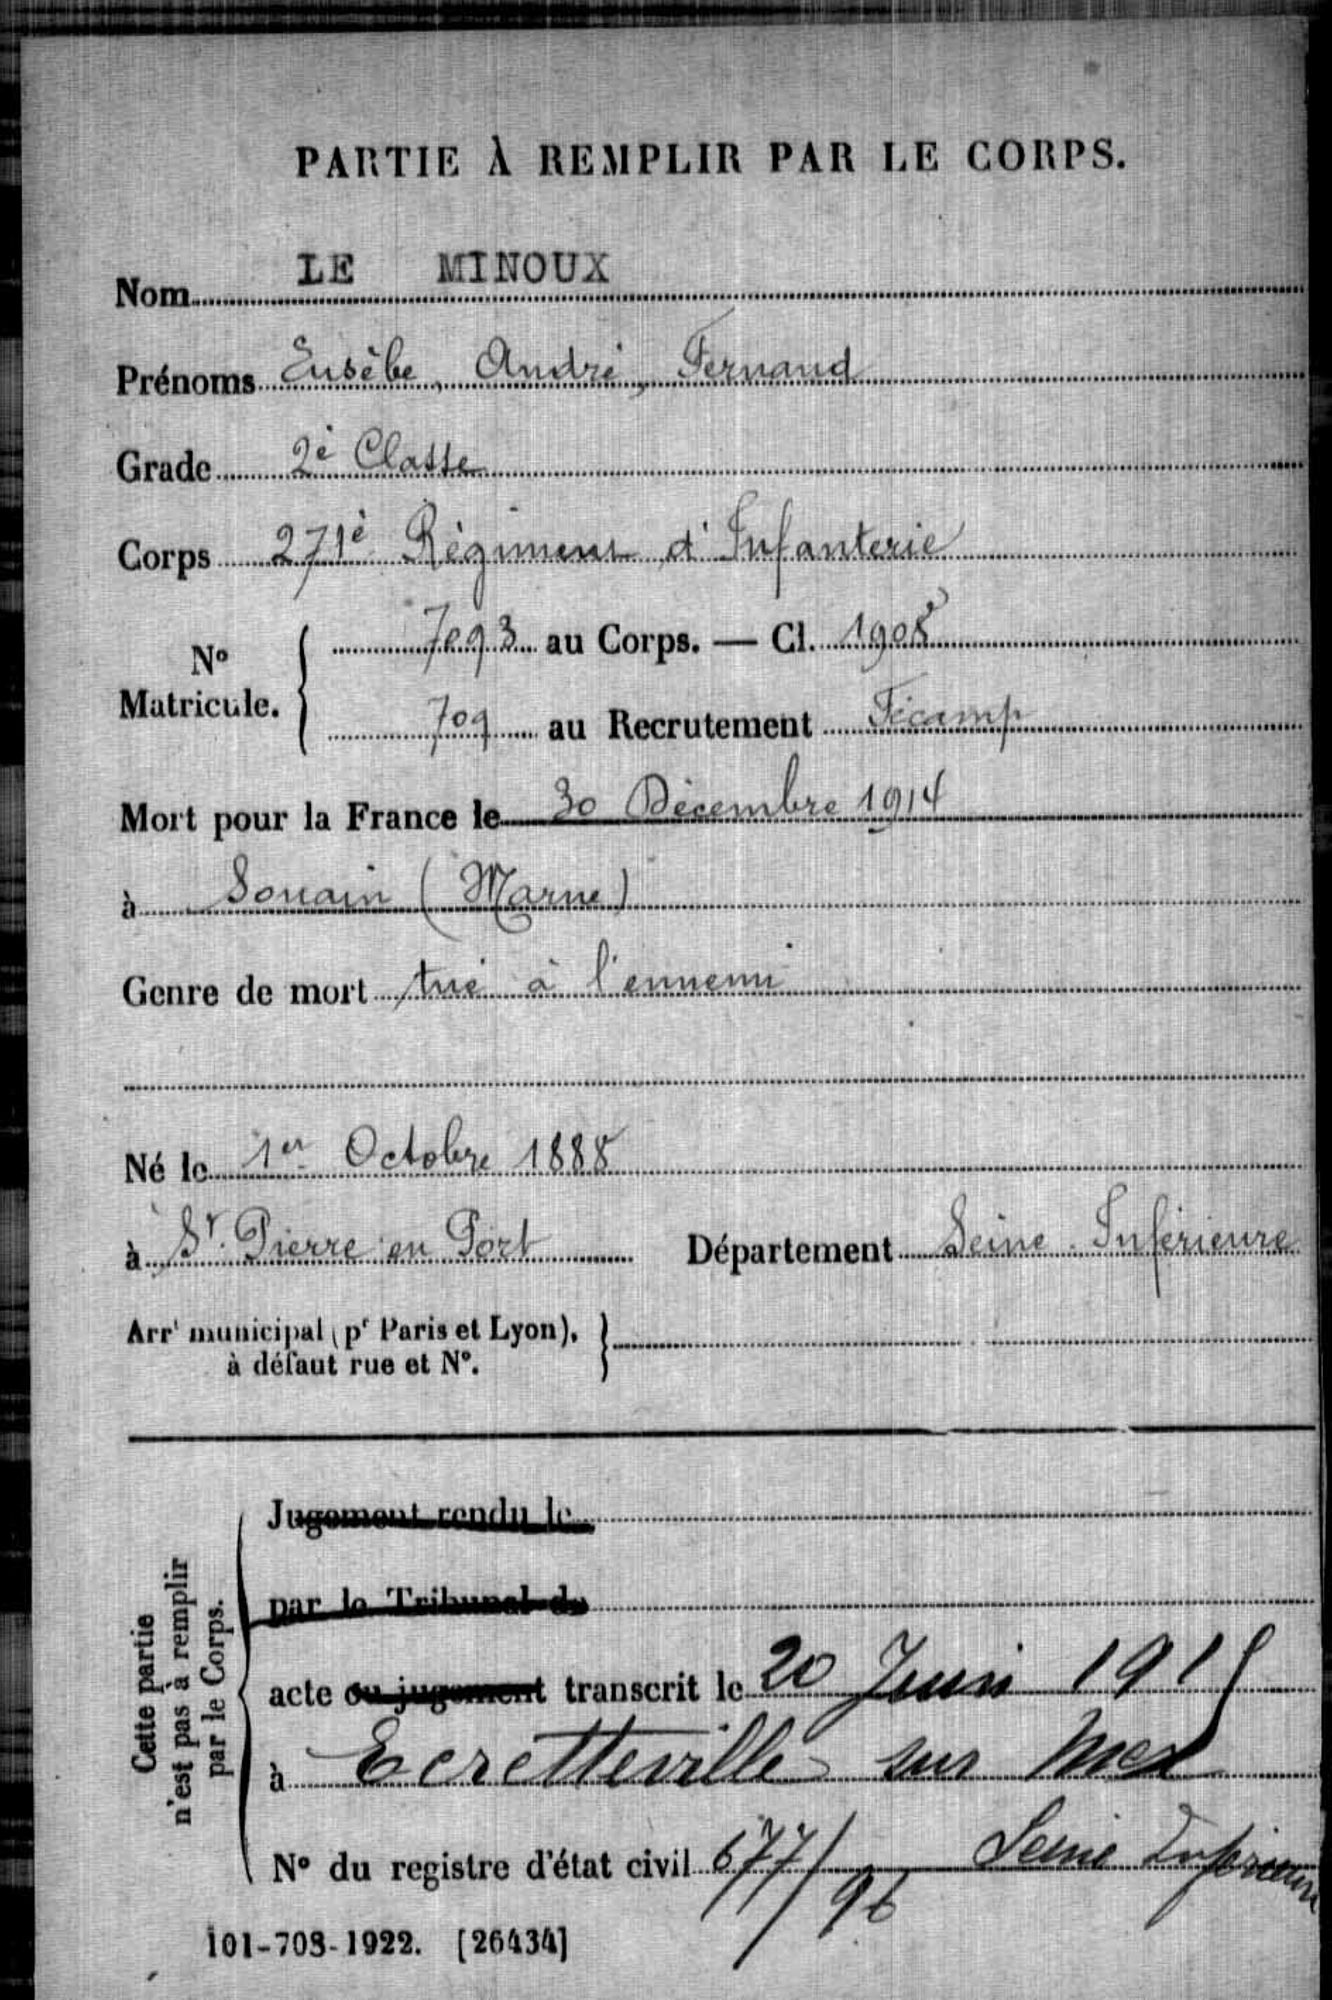 PARTIE À REMPLIR PAR LE CORPS.
Nom LE MINOUX
Prénoms Eusèbe, André, Fernand
Grade 2è Classe
Corps 271è Régiment d'Infanterie
N° Matricule. 7093 au Corps. — Cl. 1908
709 au Recrutement Fécamp
Mort pour la France le 30 Décembre 1914
à Souain (Marne)
Genre de mort tué à l'ennemi
Né le 1er Octobre 1888
à St. Pierre en Port Département Seine Inférieure
Arrt municipal (pr Paris et Lyon),
à défaut rue et N°.
Cette partie
n'est pas à remplir
par le Corps.
Jugement rendu le
par le Tribunal de
acte ou jugement transcrit le 20 Juin 1915
à Ecretteville sur Mer
N° du registre d'état civil 677/96 Seine Inférieure
101-708-1922. [26434]